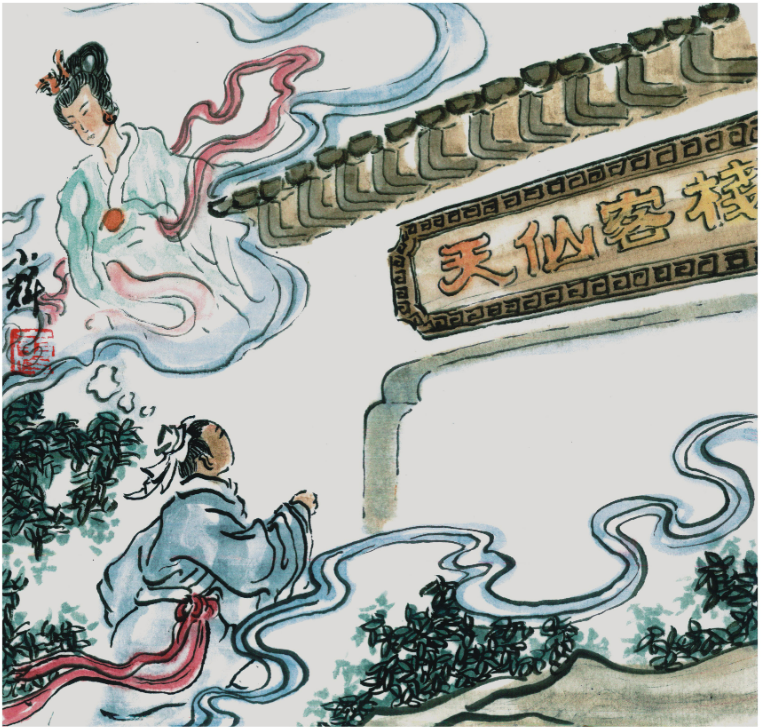 天仙客栈
小辉